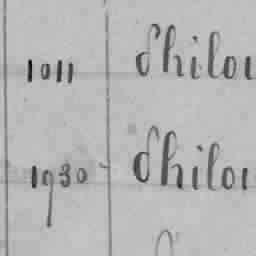 1011 Philou
1930 Philou